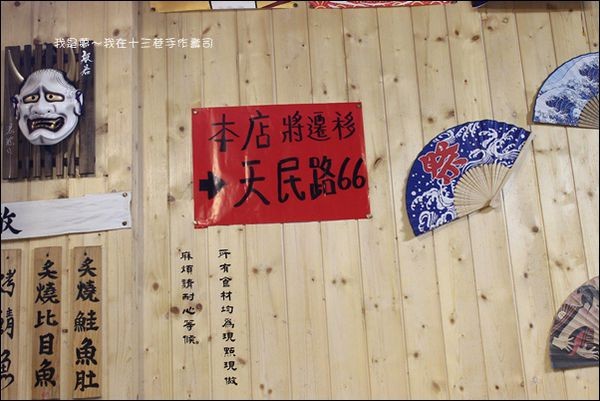 我是夢～我在十三巷手作壽司
般若
本店 將遷移
→天民路66
所有食材均為現點現做
麻煩請耐心等候。
炙燒鮭魚肚
炙燒比目魚
烤鯖魚